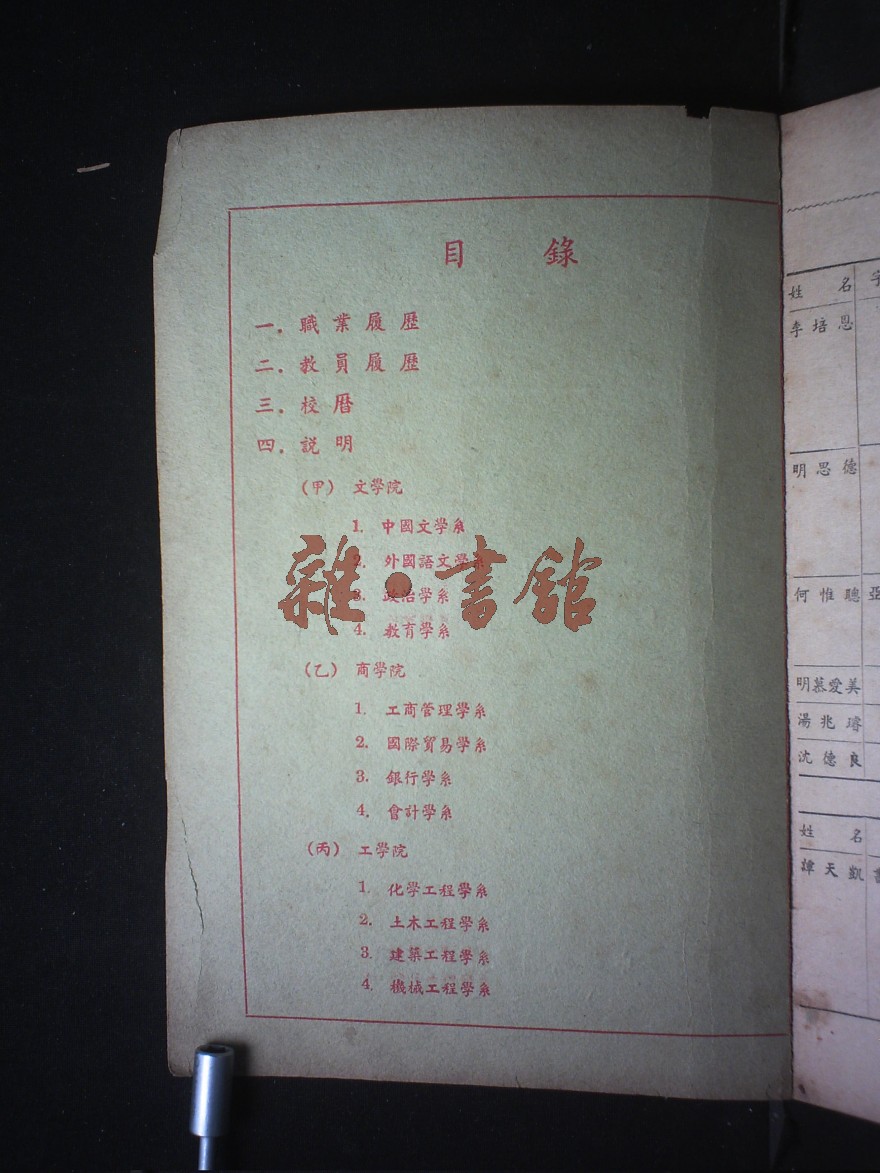 目錄
一．職業履歷
二．教員履歷
三．校曆
四．説明
（甲） 文學院
1. 中國文學系
2. 外國語文學系
3. 政治學系
4. 教育學系
雜·書館
（乙） 商學院
1. 工商管理學系
2. 國際貿易學系
3. 銀行學系
4. 會計學系
（丙） 工學院
1. 化學工程學系
2. 土木工程學系
3. 建築工程學系
4. 機械工程學系
姓名 字
李培恩
明思德
何惟聰 亞
明慕愛美
湯兆璿
沈德良
姓名
譚天凱